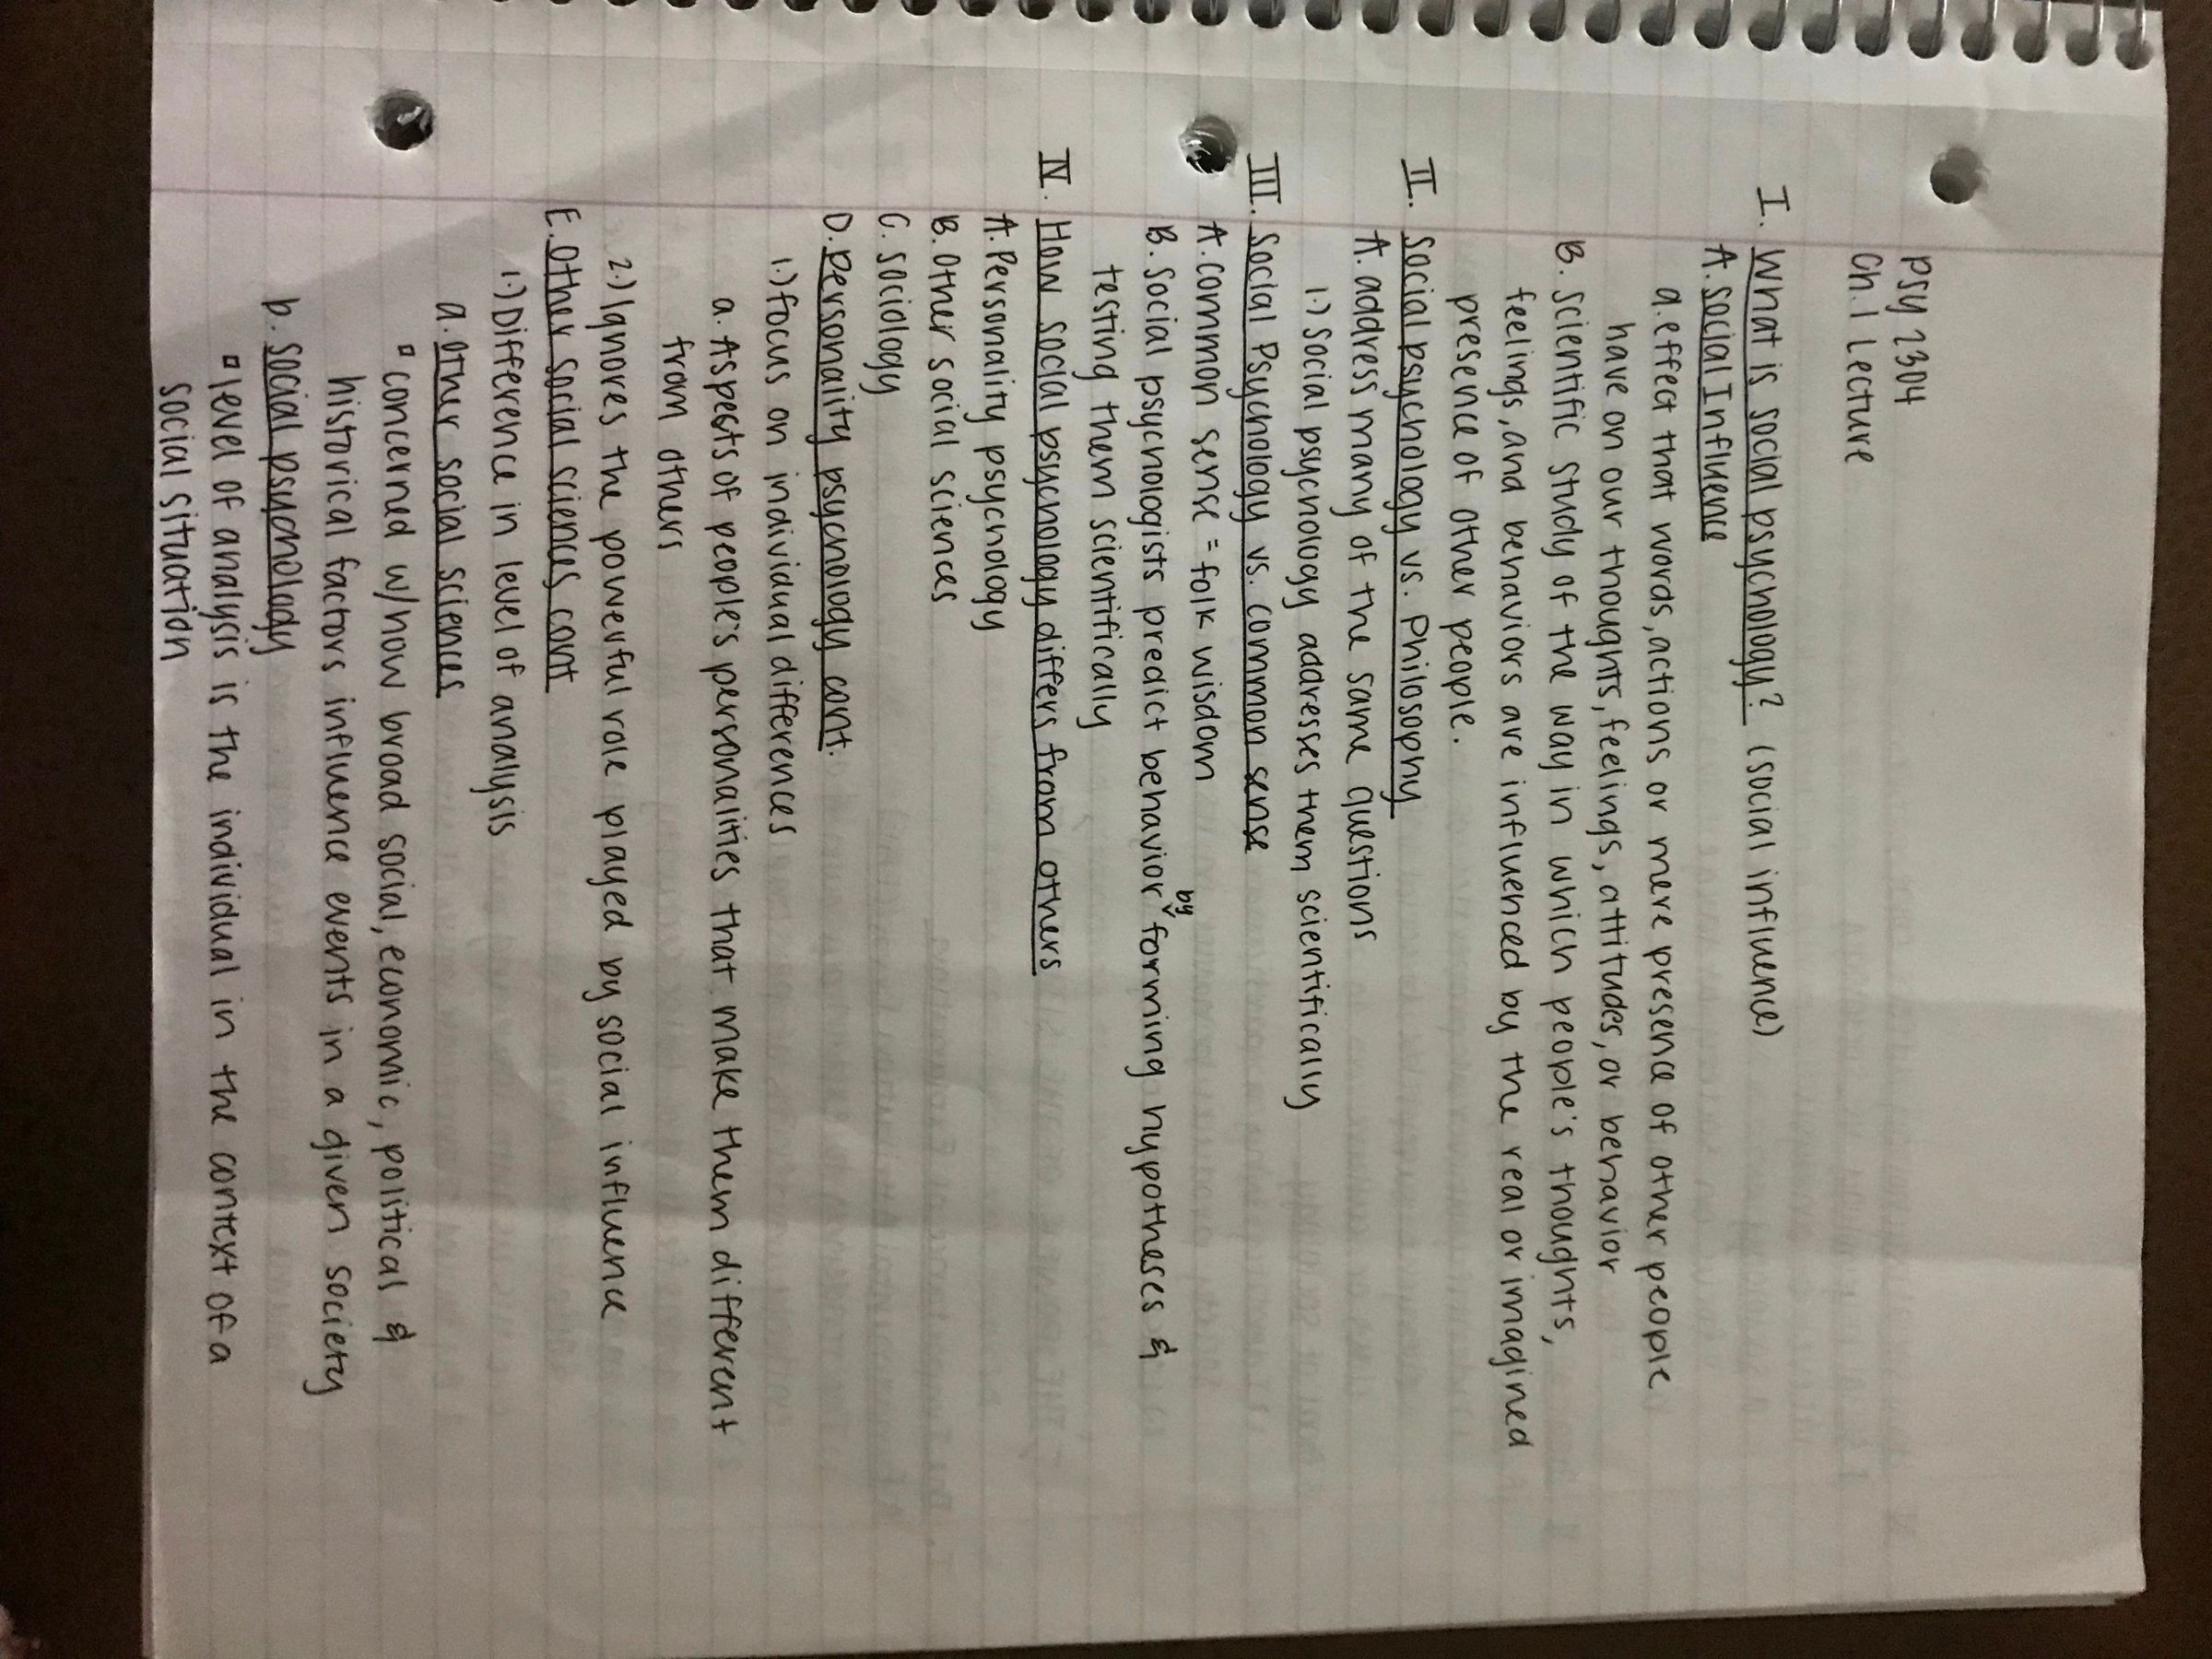 Psy 2304
Ch. 1 Lecture
I. What is social psychology? (social influence)
A. Social Influence
a. effect that words, actions or mere presence of other people
have on our thoughts, feelings, attitudes, or behavior
B. Scientific study of the way in which people's thoughts,
feelings, and behaviors are influenced by the real or imagined
presence of other people.
II. Social psychology vs. Philosophy
A. address many of the same questions
1.) Social psychology addresses them scientifically
III. Social Psychology vs. common sense
A. common sense = folk wisdom
B. Social psychologists predict behavior by forming hypotheses &
testing them scientifically
IV. How social psychology differs from others
A. Personality psychology
B. Other social sciences
C. Sociology
D. personality psychology cont.
1.) focus on individual differences
a. Aspests of people's personalities that make them different
from others
2.) Ignores the powerful role played by social influence
E. Other social sciences cont
1.) Difference in level of analysis
a. other social sciences
▫ concerned w/how broad social, economic, political &
historical factors influence events in a given society
b. social psychology
▫ level of analysis is the individual in the context of a
social situation